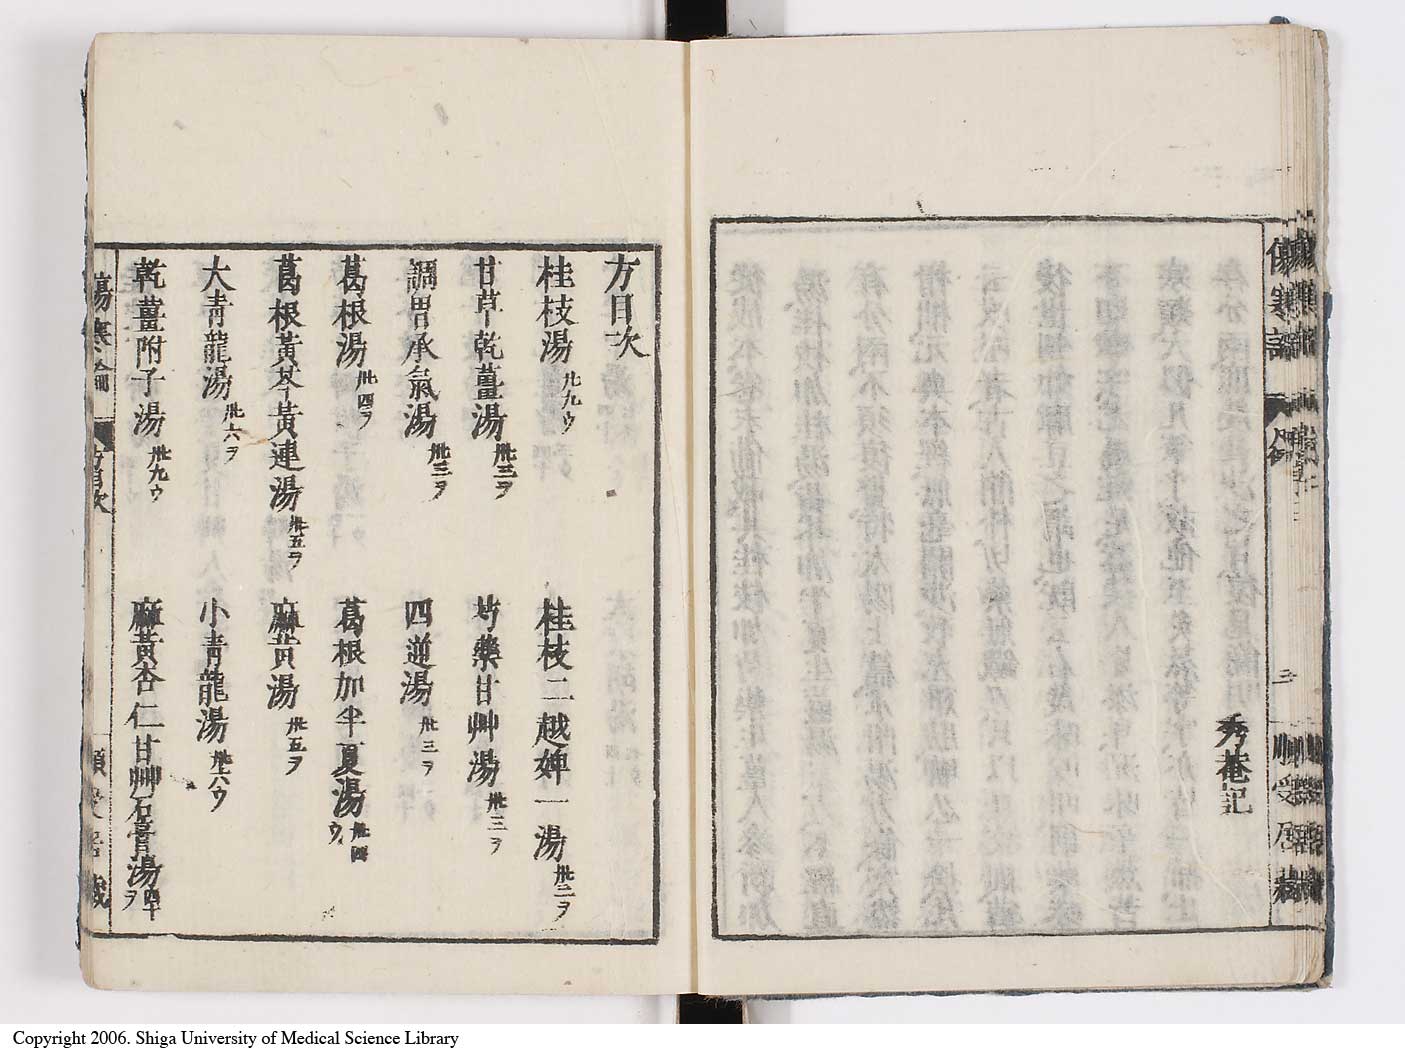 秀菴記
方目次
桂枝湯 廾九ウ
桂枝二越婢一湯 卅二ヲ
甘草乾薑湯 卅三ヲ
芍藥甘艸湯 卅三ヲ
調胃承氣湯 卅三ヲ
四逆湯 卅三ヲ
葛根湯 卅四ヲ
葛根加半夏湯 卅四ウ
葛根黃芩黃連湯 卅五ヲ
麻黃湯 卅五ヲ
大靑龍湯 卅六ヲ
小靑龍湯 卅六ウ
乾薑附子湯 卅九ウ
麻黃杏仁甘艸石膏湯 四十ヲ
方目次
Copyright 2006. Shiga University of Medical Science Library